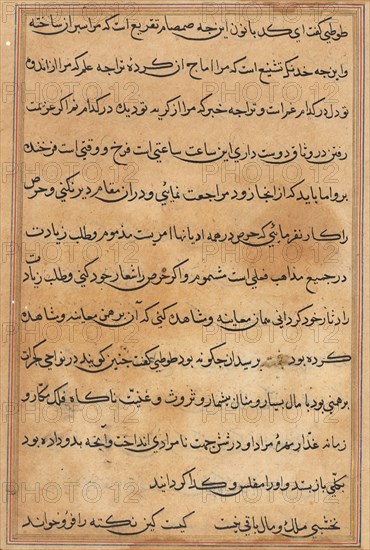 طوطی گفت ای کدبانو این چه صمصام تقریع است که مرا سپر از ساخته
و این چه خدنک تشنیع است که مرا اماج آن کرده تراچه علم که مرا از اندوه
تو دل در کدام غم است و تراچه خبر که مرا از کریه تو دیده در کدام نم اکر عزیمت
رفتن در وثاق دوست داری این ساعت ساعتی است فرخ و وقتی است فرخنده
برو اما باید که از انجا زود مراجعت نمائی و در ان مقام دیر نکنی و حرص
را کار نفرمائی که حرص در همه ادیانها امریست مذموم و طلب زیادت
در جمیع مذاهب فعلی است مشموم و اکر حرص را شعار خود کنی و طلب زیادت
را دثار خود کردانی همان معاینه و مشاهده کنی که آن برهمن معاینه و مشاهده
کرده بود پرسید آن چکونه بود طوطی کفت چنین کویند در نواحی کجرات
برهمنی بود با مال بسیار و منال بیشمار و ثروت و غنیت ناکاه فلک مکار و
زمانه غدار مهره مراد او در شش جهت نامرادی انداخت و آنچه بدو داده بود
بکلی باز ستد و او را مفلس و کدا کردانید
نخشبی ملک و مال باقی نیست کیست کین نکته را فرو خواند
PHOTO12